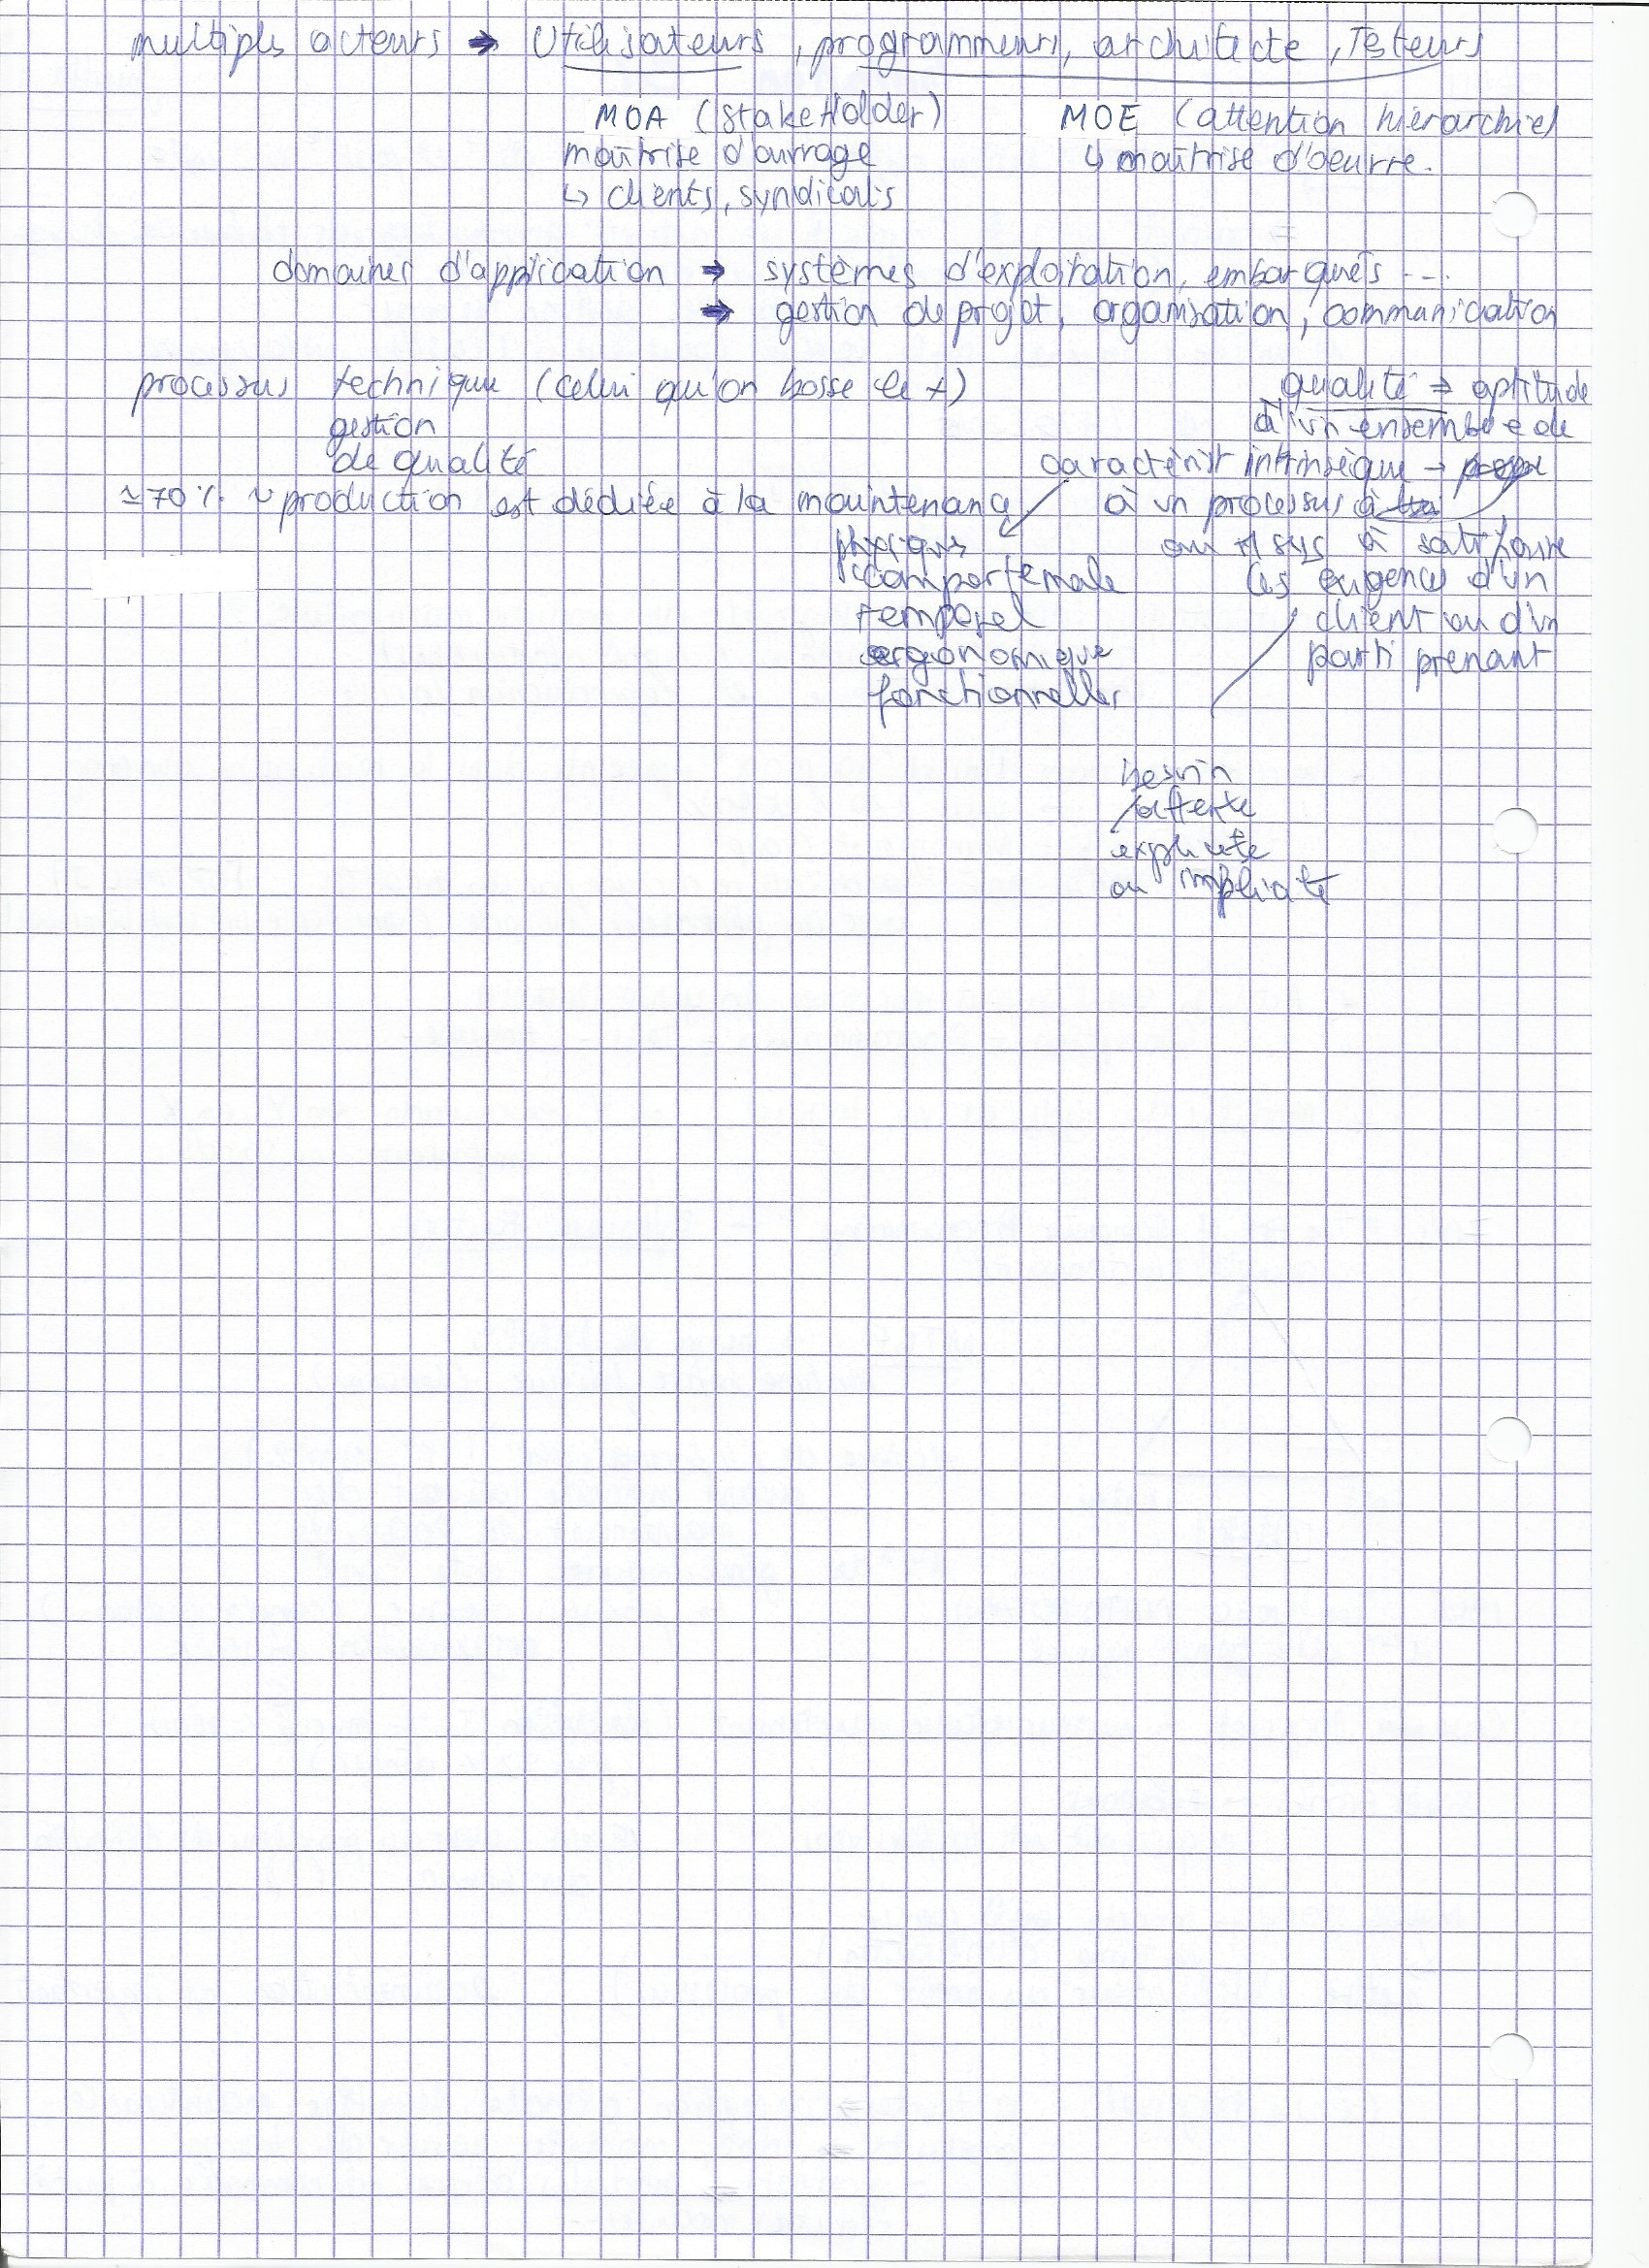 multiples acteurs → Utilisateurs, programmeurs, architecte, Testeurs
MOA (StakeHolder)
maîtrise d'ouvrage
↳ clients, syndicats
MOE (attention hiérarchie)
↳ maîtrise d'oeuvre.
domaines d'application → systèmes d'exploitation, embarqués ...
→ gestion de projet, organisation, communication
processus technique (celui qu'on bosse le +)
gestion
de qualité
≃ 70% ~ production est dédiée à la maintenance
qualité → aptitude
d'un ensemble de
caractérist intrinsèque →
à un processus
ou sys à satisfaire
les exigences d'un
client ou d'un
parti prenant
physiques
comportemale
temporel
ergonomique
fonctionnelles
besoin
/attente
explicite
ou implicite